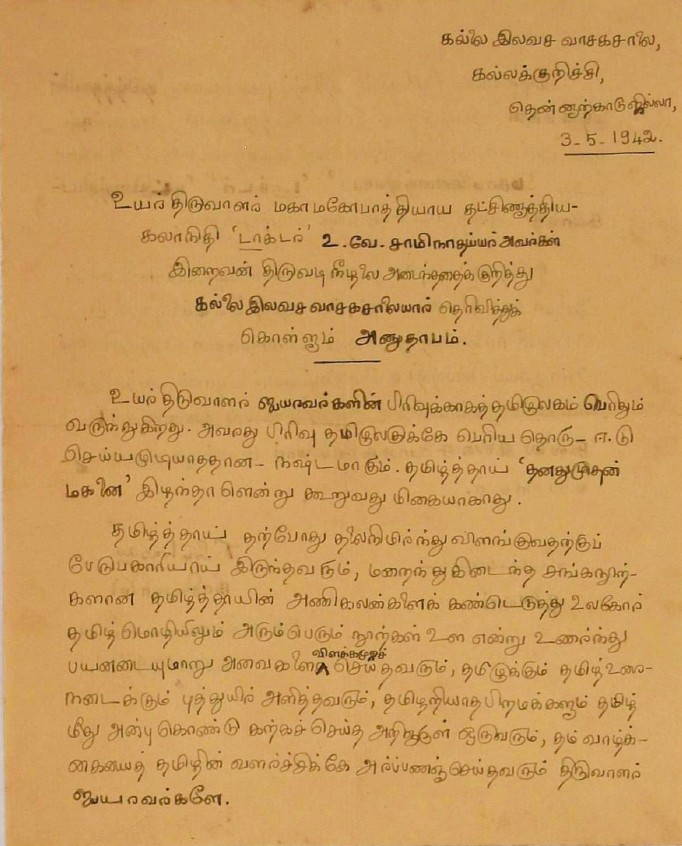 கல்லை இலவச வாசகசாலை,
கல்லக்குறிச்சி,
தென்னாற்காடு ஜில்லா,
3-5-1942.
உயர் திருவாளர் மகாமகோபாத்தியாய தட்சிணாத்திய-
கலாநிதி 'டாக்டர்' உ.வே. சாமிநாதய்யர் அவர்கள்
இறைவன் திருவடி நீழலை அடைந்ததைக் குறித்து
கல்லை இலவச வாசகசாலையார் தெரிவித்துக்
கொள்ளும் அனுதாபம்.
உயர் திருவாளர் ஐயரவர்களின் பிரிவுக்காகத் தமிழுலகம் பெரிதும்
வருந்துகிறது. அவரது பிரிவு தமிழுலகுக்கே பெரிய தொரு- ஈடு
செய்யமுடியாததான- நஷ்டமாகும். தமிழ்த்தாய் 'தனதுமுதன்
மகனை' இழந்தாளென்று கூறுவது மிகையாகாது.
தமிழ்த்தாய் தற்போது தலைநிமிர்ந்து விளங்குவதற்குப்
பேருபகாரியாய் இருந்தவரும், மறைந்து கிடைந்த சங்கநூற்-
களான தமிழ்த்தாயின் அணிகலன்களைக் கண்டெடுத்து உலகோர்
தமிழ் மொழியிலும் அரும்பெரும் நூற்கள் உள என்று உணர்ந்து
பயனடையுமாறு அவைகளை விளக்கமுறச் செய்தவரும், தமிழுக்கும் தமிழ் உரை-
நடைக்கும் புத்துயிர் அளித்தவரும், தமிழறியாத பிறமக்களும் தமிழ்
மீது அன்பு கொண்டு கற்கச் செய்த அறிஞருள் ஒருவரும், தம் வாழ்க்-
கையைத் தமிழின் வளர்ச்சிக்கே அர்ப்பணஞ்செய்தவரும் திருவாளர்
ஐயரவர்களே.